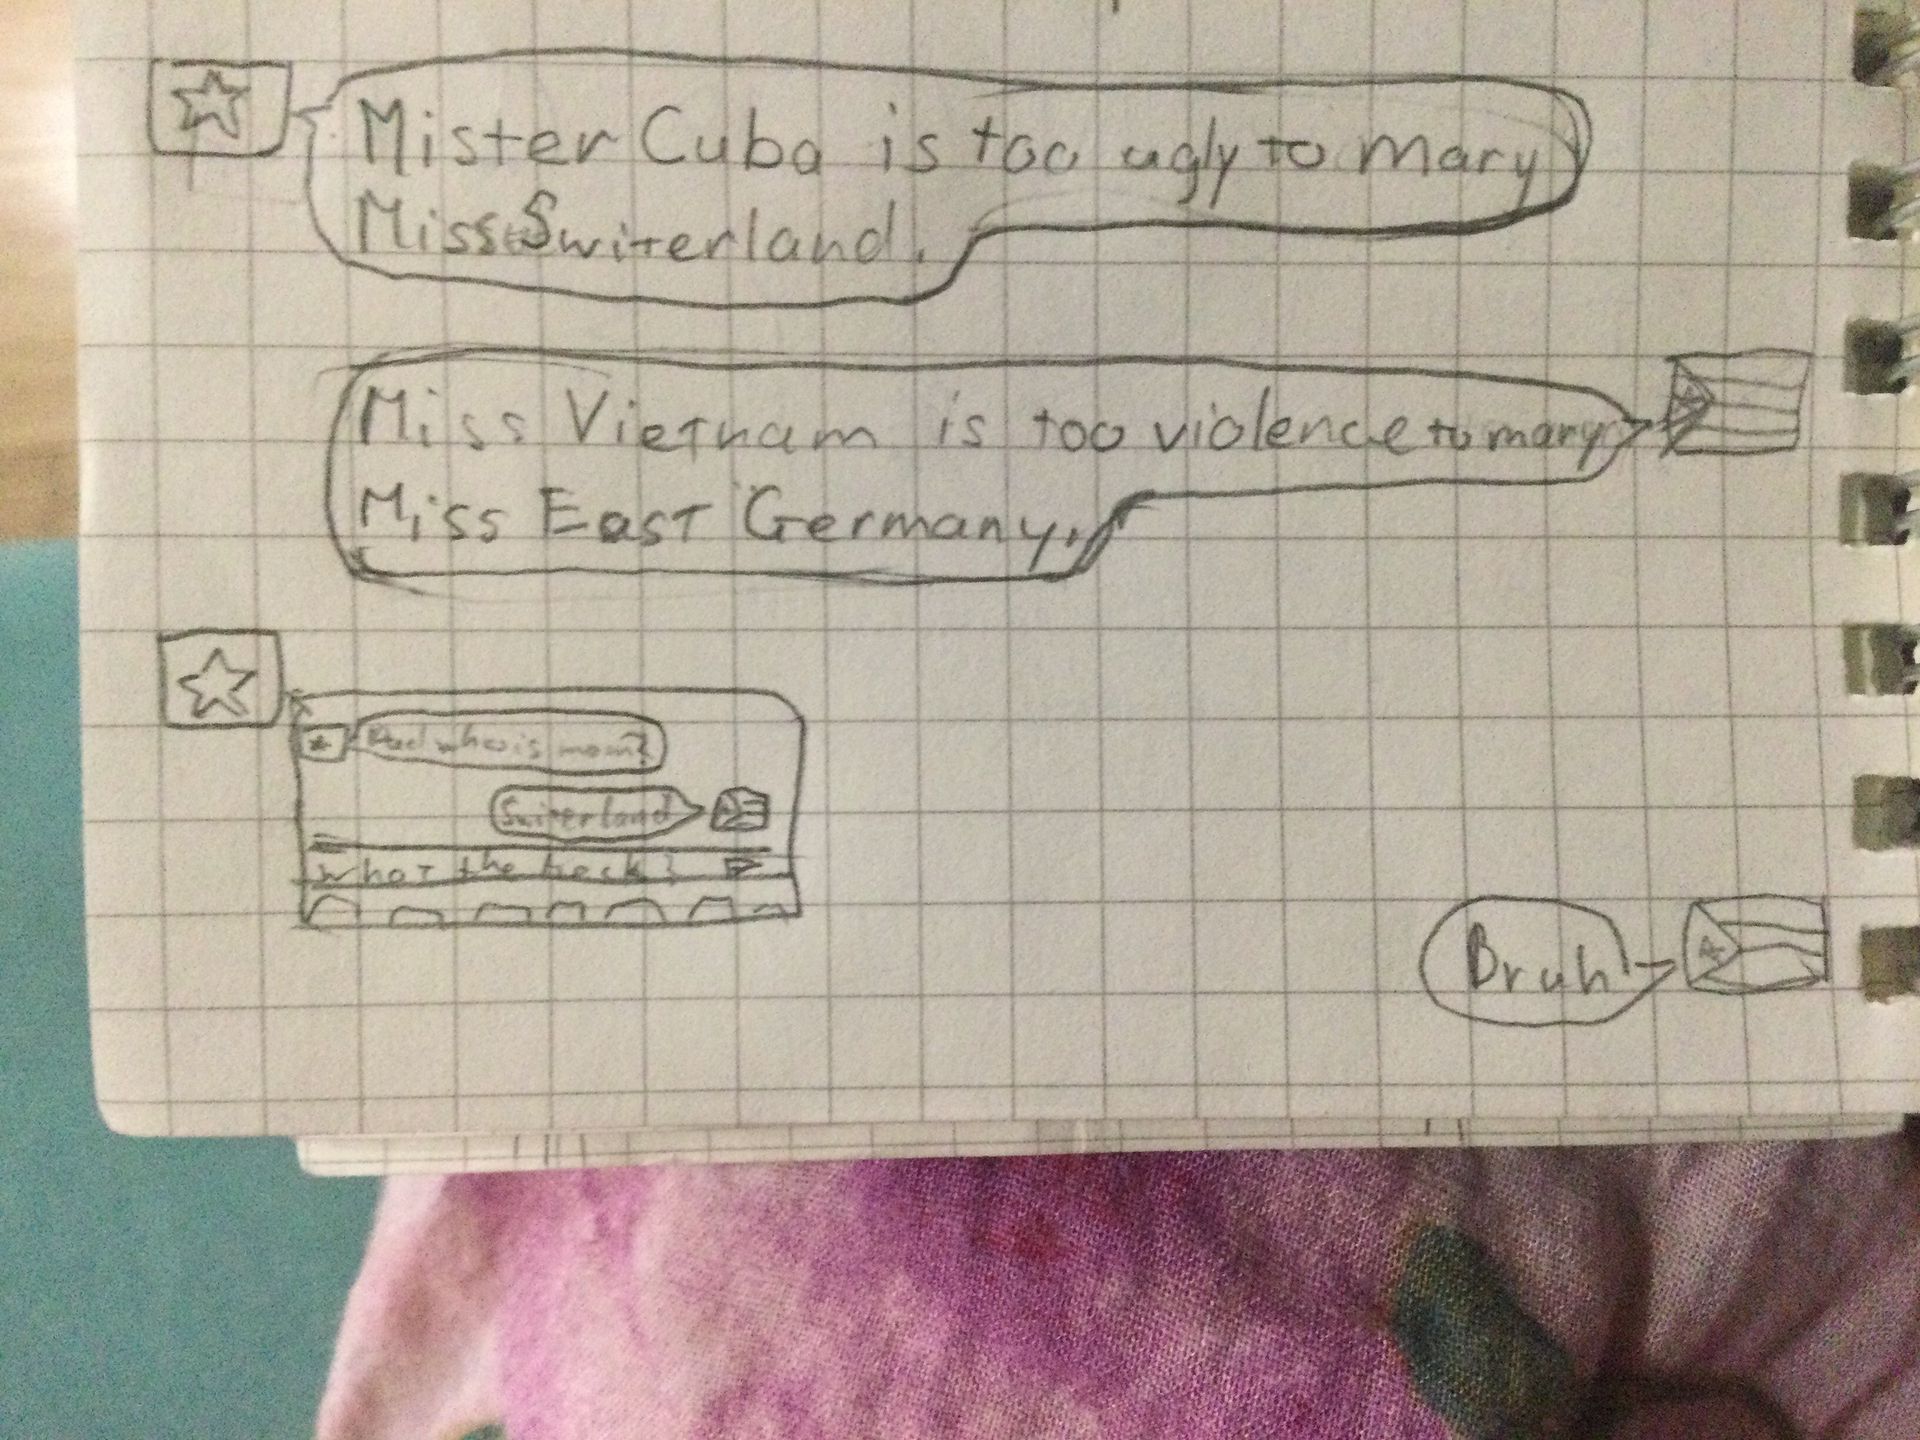 Mister Cuba is too ugly to mary
Miss Switerland.
Miss Vietnam is too violence to mary
Miss East Germany.
who is mom?
Switerland
what the heck?
Bruh